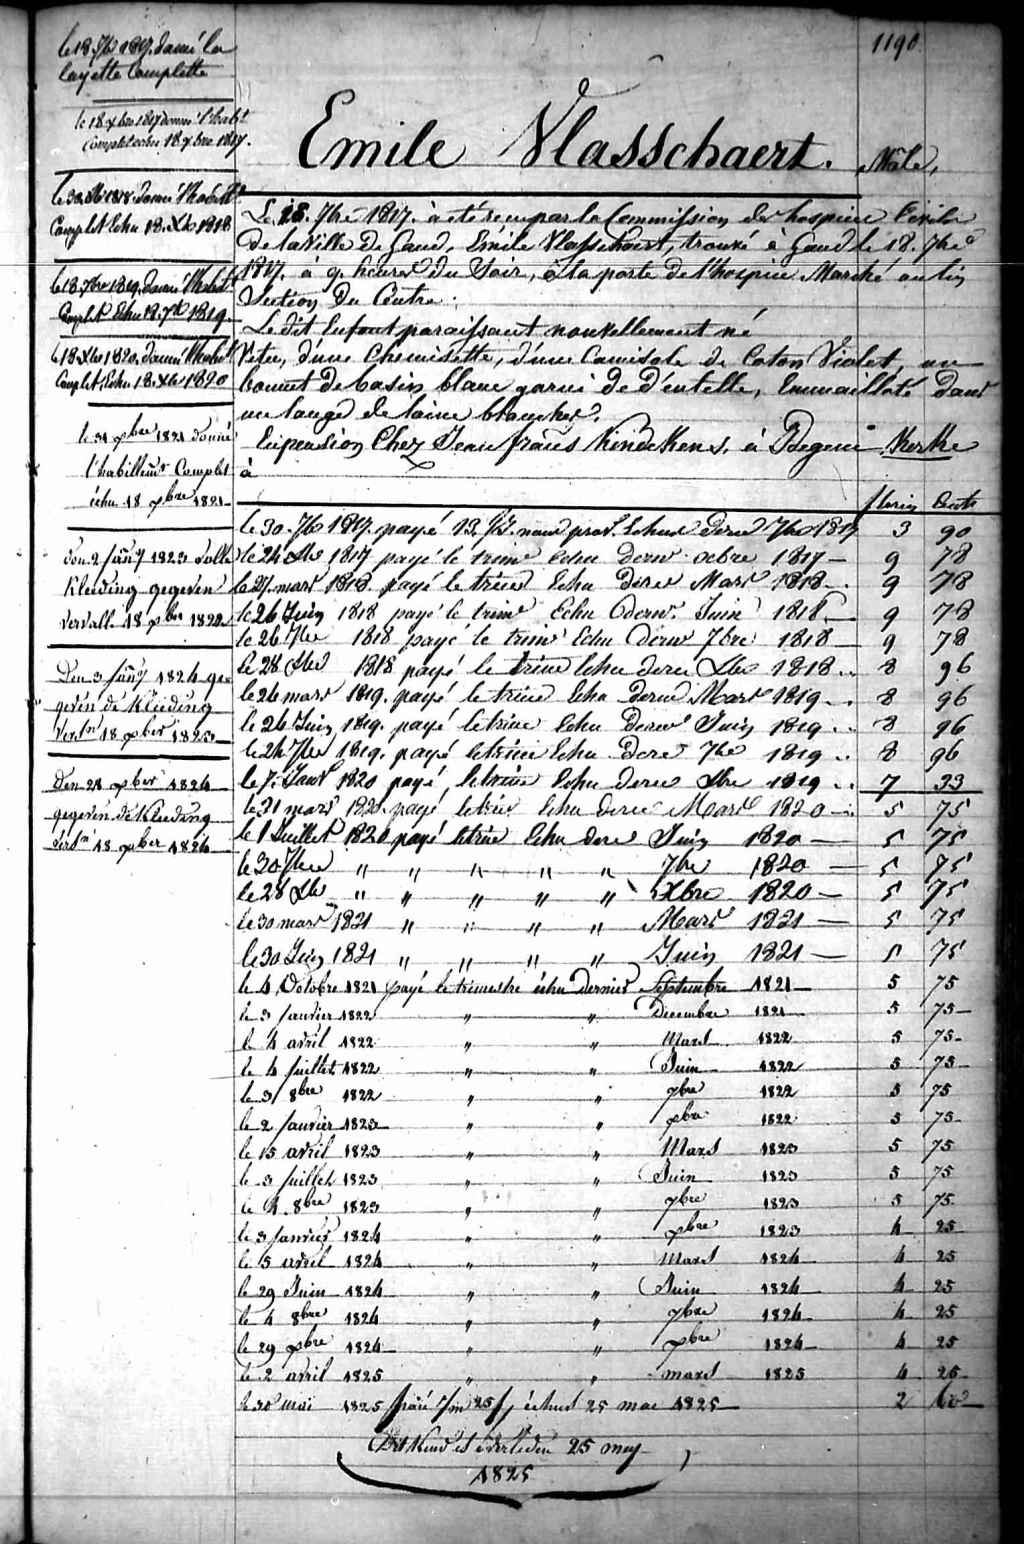 1190
le 18 7bre 1817. donné la
layette Complette
le 18 xbre 1817 donné l'habt
Complet echu 18 xbre 1817.
le 30 1818. donné l'habillt
Complet Echu 18. Xbre 1818
le 18. 7bre 1819. donné l'habillt
Complet Echu 18. 1819.
le 18 Xbre 1820. donné l'habillt
Complet, Echu 18. Xbre 1820
le 31 xbre 1821 donné
l'habillemt Complet
échu 18 xbre 1821
den 2 Janry 1823 volle
Kleeding gegeven
vervall. 18 xber 1822
Den 3 Janry 1824 ge-
geven de Kleeding
18 xber 1823
Den 28 xber 1824
gegeven de Kleeding
18 xber 1824
Emile Vlasschaert. Mâle,
Le 18. 7bre 1817. à été reçu par la Commission des hospices Civils
de la Ville de Gand, Emile Vlasschaert, trouvé à Gand le 18. 7bre
1817. à 9. heures du Soir, à la porte de l'hospice Marché au lin
Section du Centre.
Le dit Enfant paraissant nouvellement né
Vetu, d'une Chemisette, d'une Camisole de Coton Violet, un
bonnet de basin blanc garni de d'entelle, Emmailloté dans
un lange de laine blanche.
En pension Chez Jean frans Kindekens, à Oegem Kerke
à
florin Cents
le 30. 7bre 1817. payé 13. Echus dern 7bre 1817 3 90
le 24 Xbre 1817 payé le trime Echu dernr xbre 1817 9 78
le 27. mars 1818. payé le trime Echu dernr Mars 1818 9 78
le 26 Juin 1818 payé le trime Echu dernr Juin 1818 9 78
le 26 7bre 1818 payé le trime Echu dernr 7bre 1818 9 78
le 28 Xbre 1818 payé le trime Echu dernr Xbre 1818 8 96
le 26 mars 1819. payé le trime Echu dernr Mars 1819 8 96
le 24 Juin 1819. payé le trime Echu dernr Juin 1819 8 96
le 24 7bre 1819. payé le trime Echu dernr 7bre 1819 8 96
le 7. Janr 1820 payé, le trime Echu dernr Xbre 1819 7 33
le 31 mars 1820. payé le trime Echu dernr Mars 1820 5 75
le 1 Juillet 1820 payé le trime Echu dernr Juin 1820 5 75
le 30 7bre " " " " " 7bre 1820 5 75
le 28 Xbre " " " " " Xbre 1820 5 75
le 30 mars 1821 " " " " Mars 1821 5 75
le 30 Juin 1821 " " " " Juin 1821 5 75
le 4 Octobre 1821 payé le trimestre échu dernier Septembre 1821 5 75
le 3 janvier 1822 " " Decembre 1821 5 75
le 4 avril 1822 " " Mars 1822 5 75
le 4 juillet 1822 " " Juin 1822 5 75
le 3 8bre 1822 " " 7bre 1822 5 75
le 2 janvier 1823 " " xbre 1822 5 75
le 15 avril 1823 " " Mars 1823 5 75
le 3 juillet 1823 " " Juin 1823 5 75
le 4 8bre 1823 " " 7bre 1823 5 75
le 3 janvier 1824 " " xbre 1823 4 25
le 5 avril 1824 " " Mars 1824 4 25
le 29 Juin 1824 " " Juin 1824 4 25
le 4 8bre 1824 " " 7bre 1824 4 25
le 29 xbre 1824 " " xbre 1824 4 25
le 2 avril 1825 " " mars 1825 4 25
le 30 mai 1825 échus 25 mai 1825 2 60
Dit Kind is overleden 25 mey
1825